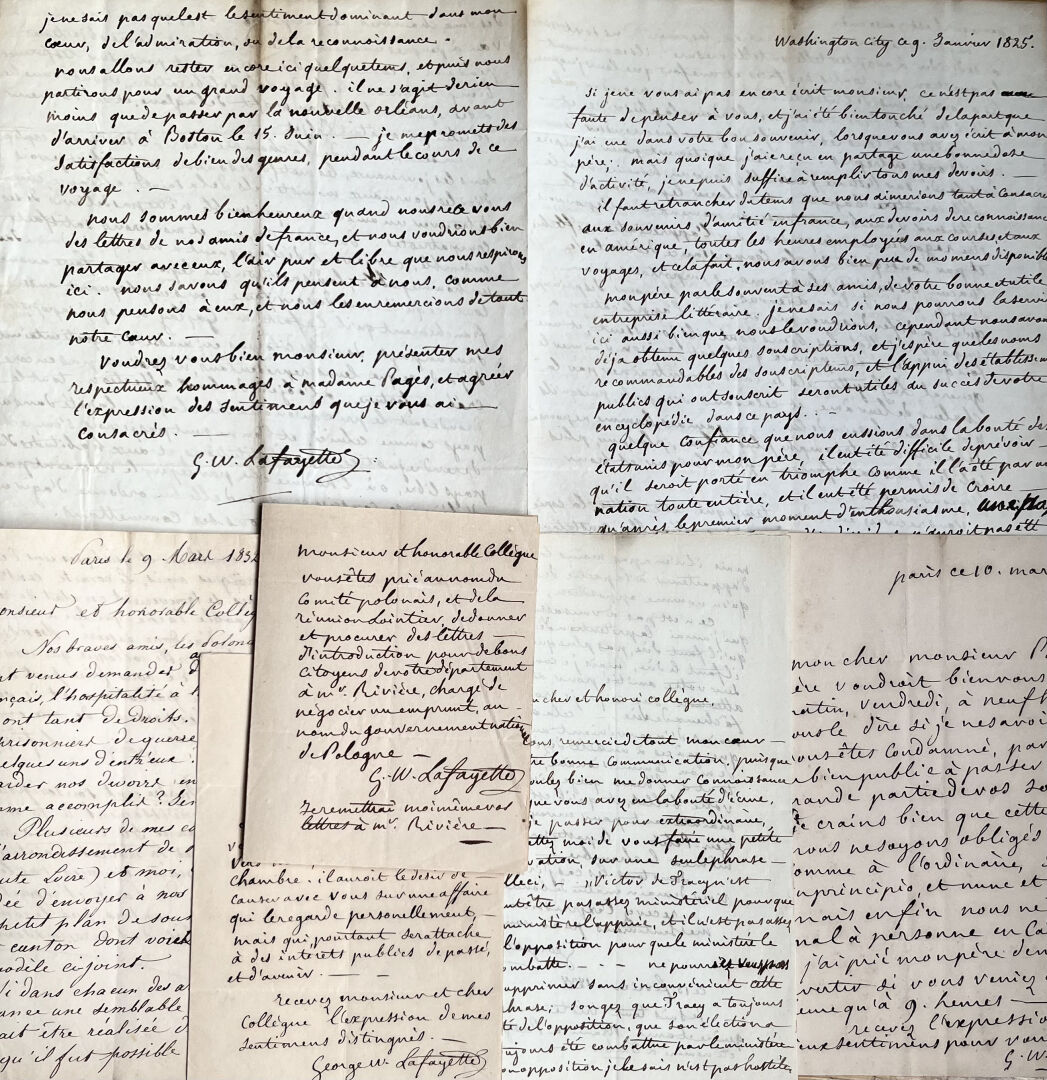 je ne sais pas quel est le sentiment dominant dans mon
cœur, de l'admiration, ou de la reconnoissance.
nous allons rester encore ici quelque tems, et puis nous
partirons pour un grand voyage. il ne s'agit de rien
moins que de passer par la nouvelle orléans, avant
d'arriver à Boston le 15. Juin. — je me promets des
satisfactions de bien des genres, pendant le cours de ce
voyage. —
nous sommes bien heureux quand nous rece vons
des lettres de nos amis de france, et nous voudrions bien
partager avec eux, l'air pur et libre que nous respirons
ici. nous savons qu'ils pensent à nous, comme
nous pensons à eux, et nous les en remercions de tout
notre cœur. —
Voudrez vous bien monsieur, présenter mes
respectueux hommages à madame Pagès, et agréer
l'expression des sentimens que je vous ai
consacrés. —
G. W. Lafayette
Washington City ce 9. Janvier 1825.
si je ne vous ai pas encore écrit monsieur, ce n'est pas
faute de penser à vous, et j'ai été bien touché de la part que
j'ai eue dans votre bon souvenir, lorsque vous avez écrit à mon
père; mais quoique j'aie reçu en partage une bonne dose
d'activité, je ne puis suffire à remplir tous mes devoirs. —
il faut retrancher du tems que nous aimerions tant à consacrer
aux souvenirs d'amitié en france, aux devoirs de reconnoissance
en amérique, toutes les heures employées aux courses, et aux
voyages, et cela fait, nous avons bien peu de momens disponibles
mon père parle souvent à ses amis, de votre bonne et utile
entreprise littéraire. je ne sais si nous pourrons la servir
ici aussi bien que nous le voudrions, cependant nous avons
déja obtenu quelques souscriptions, et j'espère que les noms
recommandables des souscripteurs, et l'appui des établissem
publics qui ont souscrit seront utiles au succès de votre
encyclopédie dans ce pays. . —
quelque confiance que nous eussions dans la bonté des
états unis pour mon père, il eut été difficile de prévoir —
qu'il seroit porté en triomphe comme il l'a été par une
nation toute entière, et il eut été permis de croire
qu'après le premier moment d'enthousiasme,
Paris le 9 Mars 1832
onsieur et honorable Collèg
Nos braves amis, les Polon
nt venus demander
nçais, l'hospitalité à
ont tant de droits.
prisonniers de guerre
elques uns d'entr'eux.
arder nos devoirs en
me accomplit?
Plusieurs de mes co
l'arrondissement de
ute Loire) et moi,
dée d'envoyer à nos
petit plan de sous
canton dont voici
modèle ci joint.
i dans chacun des a
ance une semblable
ait être réalisée d
qu'il fut possible
Monsieur et honorable Collègue
vous êtes prié au nom du
Comité polonais, et de la
réunion Lointier, de donner
et procurer des lettres —
d'introduction pour de bons
citoyens de votre département
à mr. Rivière, chargé de
négocier un emprunt, au
nom du gouvernement national
de Pologne —
G. W. Lafayette
Je remettrai moi même vos
lettres à mr. Rivière —
chambre: il auroit le désir de —
causer avec vous sur une affaire
qui le regarde personellement,
mais qui, pourtant se rattache
à des intérets publics de passé,
et d'avenir. — —
recevez monsieur et cher
Collègue l'expression de mes
sentimens distingués. —
George W. Lafayette
cher et honoré collegue,
ous remercie de tout mon cœur —
tre bonne communication, puisque
oulez bien me donner connoissance
que vous avez eu la bonté d'écrire,
de passer pour extraordinaire,
ettez moi de vous faire une petite
vation, sur une seule phrase —
lle ci, — "Victor de Tracy n'est
ut être pas assez ministériel pour que
ministère l'appuie, et il n'est pas assez
l'opposition pour que le ministère le
ombatte. — - ne pourriez vous pas
upprimer sans inconvénient cette
hrase; songez que Tracy a toujours
té de l'opposition, que son élection a
oujours été combattue par le ministère
opposition je le sais n'est pas hostile,
paris ce 10. mar
mon cher monsieur P
ère voudroit bien vous
matin, vendredi, à neuf h
ousle dire si je ne savois
vous êtes condamné, par
bien public à passer
rande partie de vos so
e crains bien que cette
vous ne soyons obligés
omme à l'ordinaire,
n principio, et nunc et
mais enfin nous ne
nal à personne en Ca
j'ai prié mon père de m
vertir si vous veniez
eme qu'à 9. heures —
recevez l'expression
eux sentimens pour vou
G. W.